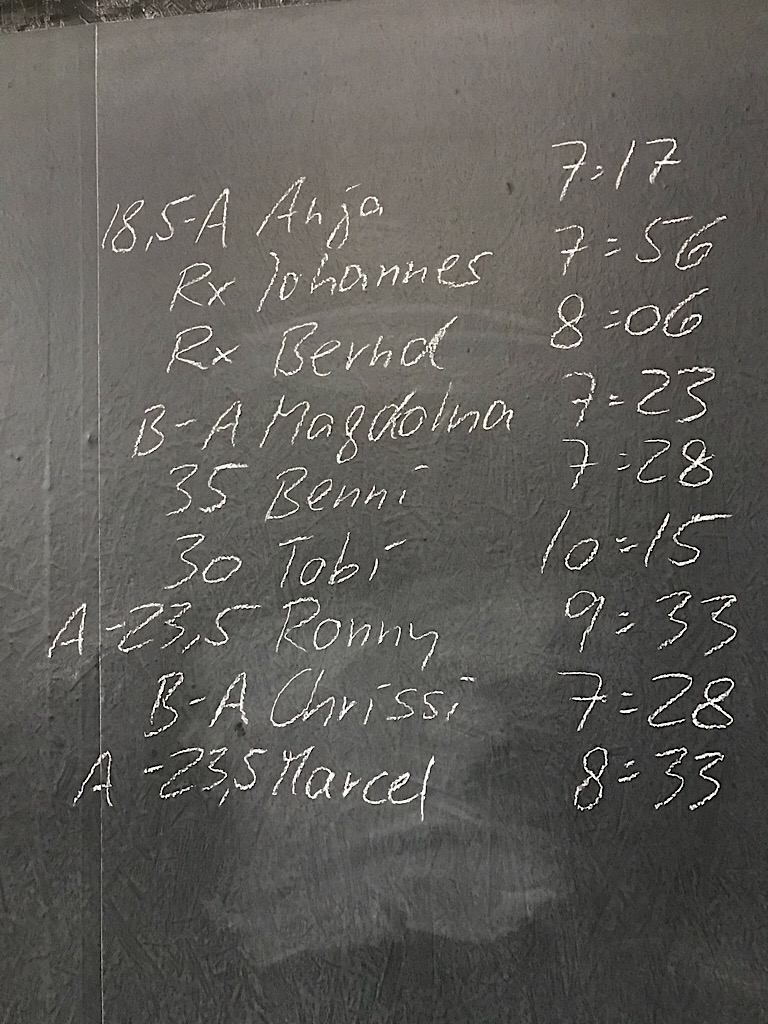 18,5-A Anja 7:17
Rx Johannes 7:56
Rx Bernd 8:06
B-A Magdolna 7:23
35 Benni 7:28
30 Tobi 10:15
A-23,5 Ronny 9:33
B-A Chrissi 7:28
A-23,5 Marcel 8:33